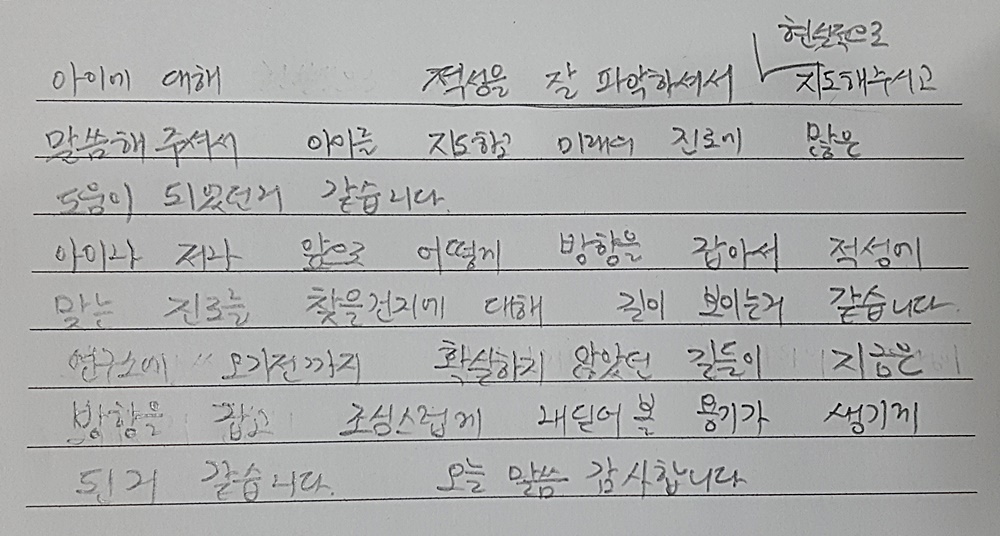 현실적으로
아이에 대해 적성을 잘 파악하셔서 지도해주시고
말씀해 주셔서 아이를 지도하고 미래의 진로에 많은
도움이 되었던거 같습니다.
아이나 저나 앞으로 어떻게 방향을 잡아서 적성에
맞는 진로를 찾을건지에 대해 길이 보이는거 같습니다.
연구소에 오기전까지 확실하치 않았던 길들이 지금은
방향을 잡고 조심스럽게 내딛어 볼 용기가 생기게
된거 같습니다. 오늘 말씀 감사합니다